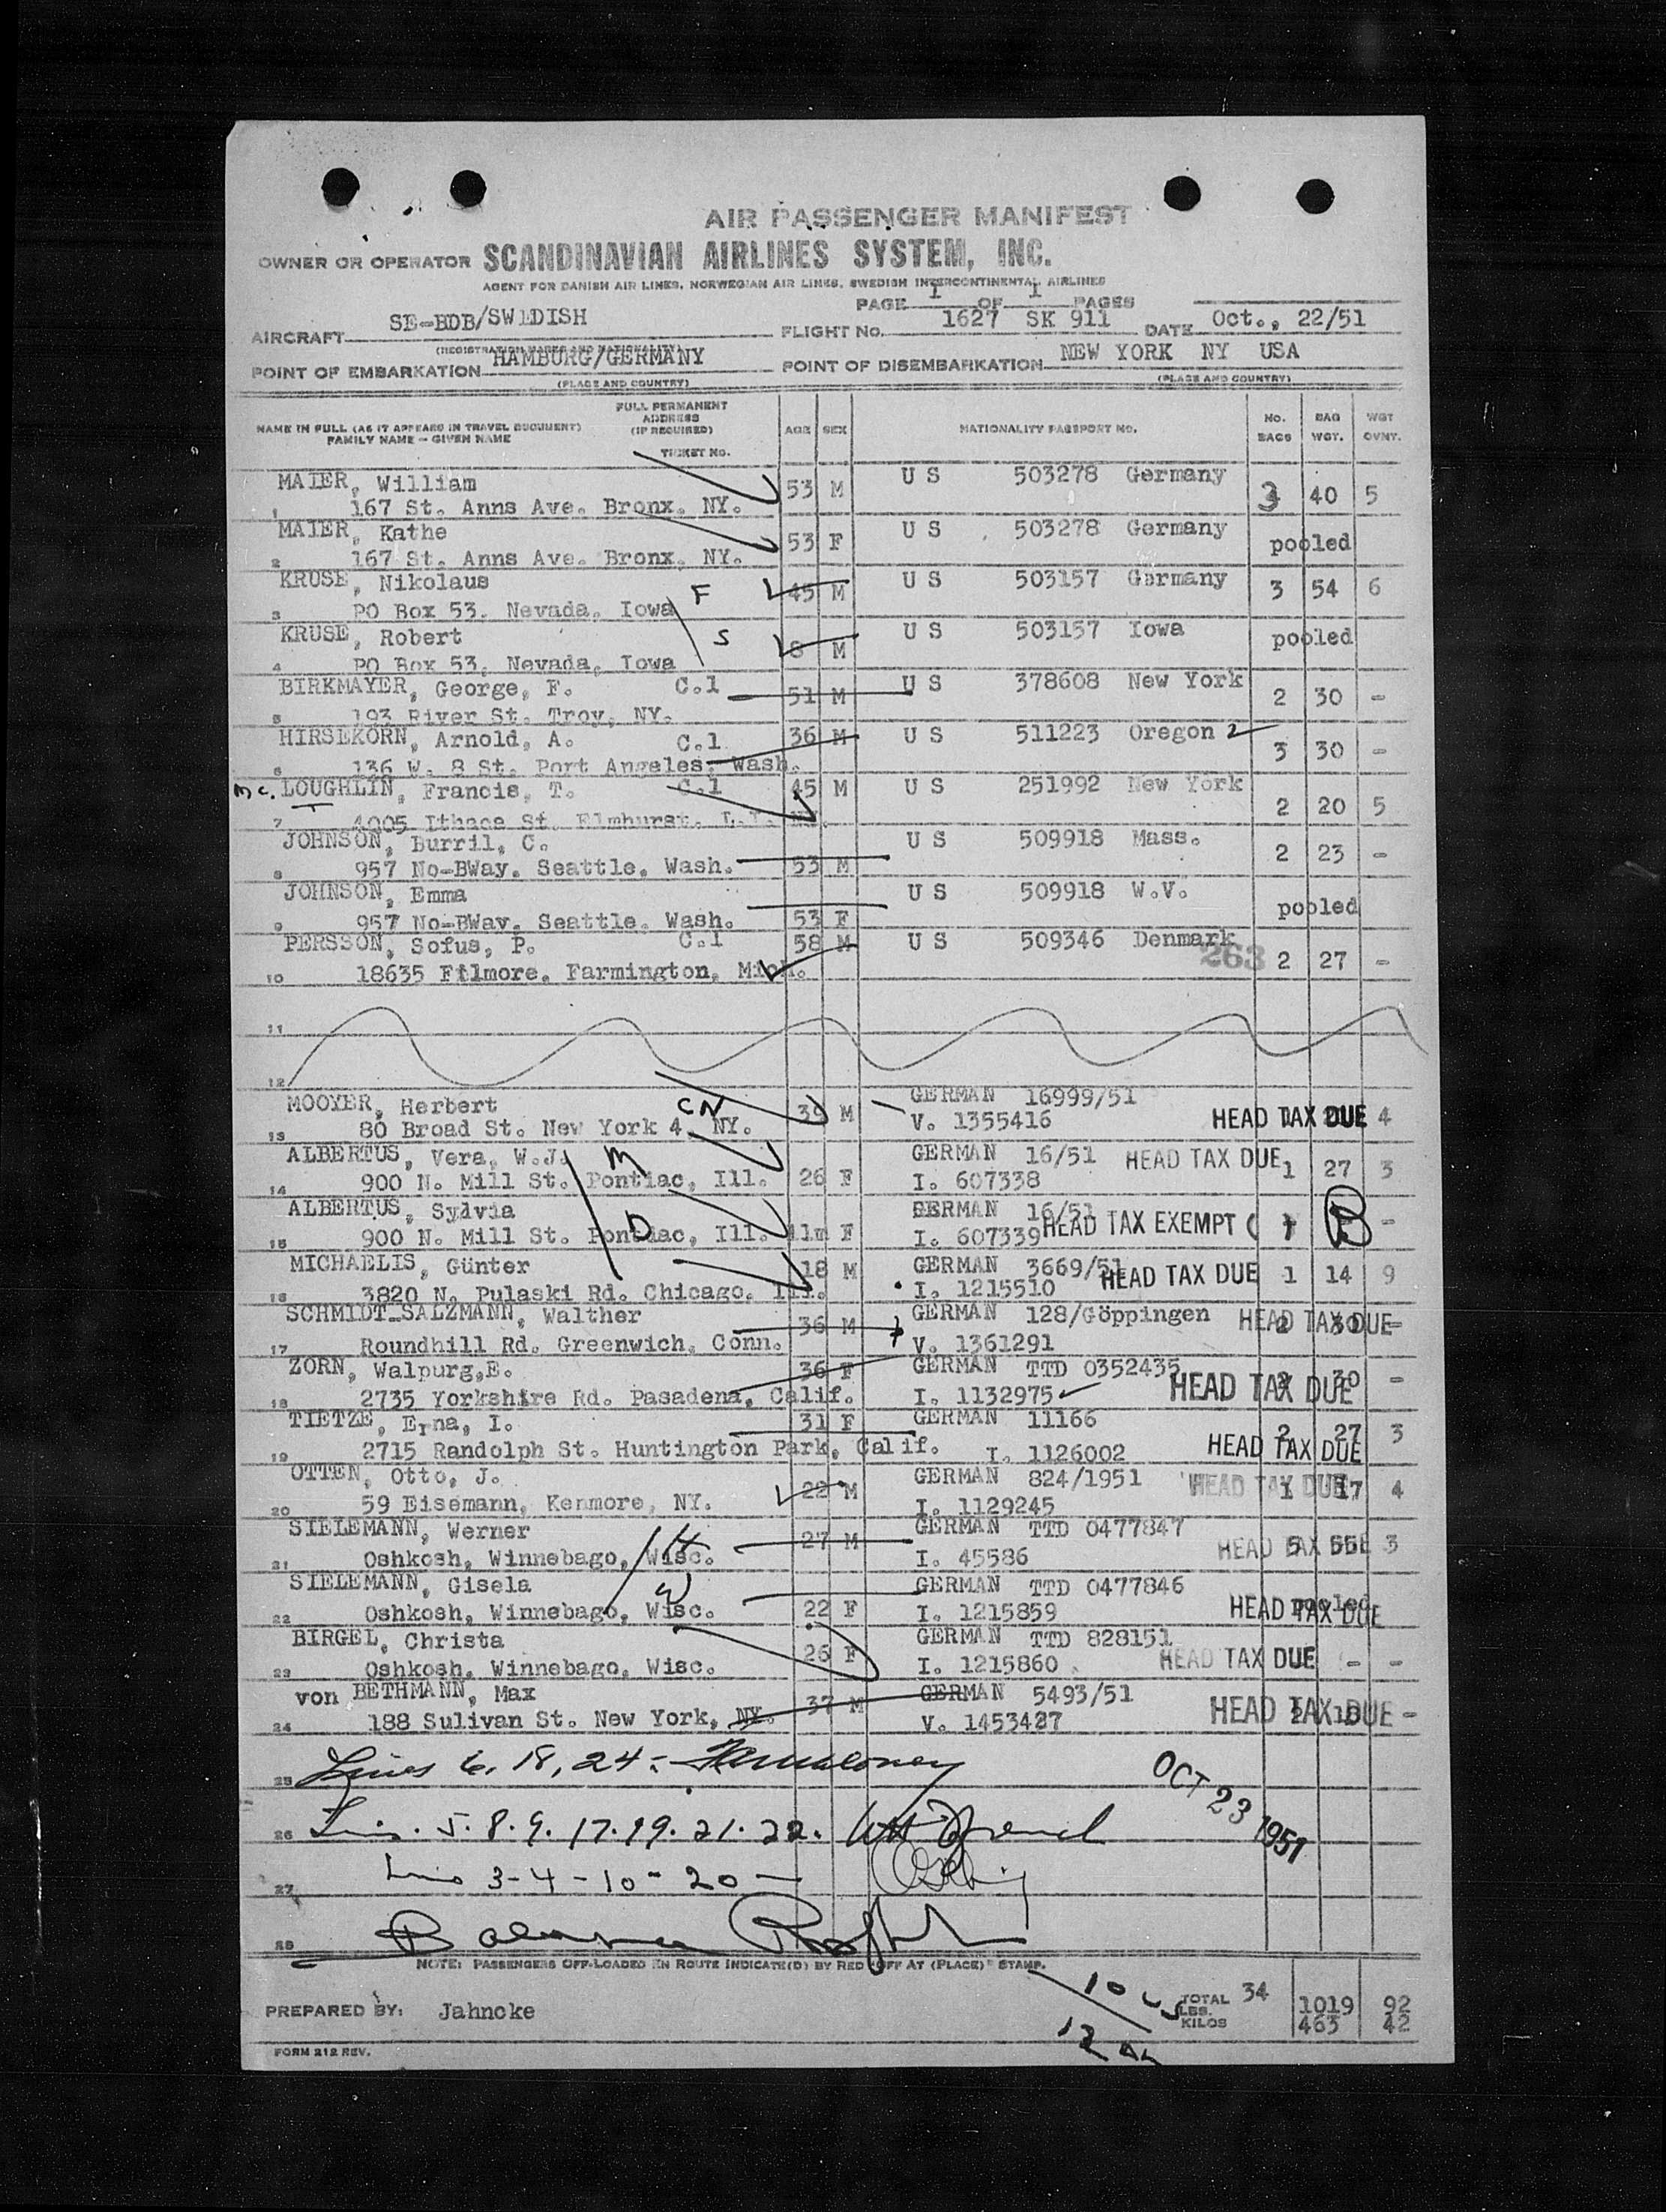 AIR PASSENGER MANIFEST
OWNER OR OPERATOR SCANDINAVIAN AIRLINES SYSTEM, INC.
AGENT FOR DANISH AIR LINES, NORWEGIAN AIR LINES, SWEDISH INTERCONTINENTAL AIRLINES
PAGE 1 OF 1 PAGES
AIRCRAFT SE-BDB/SWEDISH FLIGHT No. 1627 SK 911 DATE Oct., 22/51
(REGISTRATION MARKS AND NATIONALITY)
POINT OF EMBARKATION HAMBURG/GERMANY POINT OF DISEMBARKATION NEW YORK NY USA
(PLACE AND COUNTRY) (PLACE AND COUNTRY)
NAME IN FULL (AS IT APPEARS IN TRAVEL DOCUMENT) FAMILY NAME - GIVEN NAME FULL PERMANENT ADDRESS (IF REQUIRED) TICKET No. AGE SEX NATIONALITY PASSPORT NO. No. BAGS BAG WGT. WGT OVNT.
MAIER, William 53 M U S 503278 Germany 3 40 5
1 167 St. Anns Ave. Bronx. NY.
MAIER, Kathe 53 F U S 503278 Germany pooled
2 167 St. Anns Ave. Bronx. NY.
KRUSE, Nikolaus F 45 M U S 503157 Germany 3 54 6
3 PO Box 53. Nevada. Iowa
KRUSE, Robert S 8 M U S 503157 Iowa pooled
4 PO Box 53. Nevada, Iowa
BIRKMAYER, George, F. C.1 51 M U S 378608 New York 2 30 -
5 193 River St. Troy, NY.
HIRSEKORN, Arnold, A. C.1 36 M U S 511223 Oregon 2 3 30 -
6 136 W. 8 St. Port Angeles. Wash.
Mc. LOUGHLIN, Francis, T. C.1 45 M U S 251992 New York 2 20 5
7 4005 Ithaca St. Elmhurst. L.I. NY.
JOHNSON, Burril, C. 53 M U S 509918 Mass. 2 23 -
8 957 No-BWay. Seattle. Wash.
JOHNSON, Emma 53 F U S 509918 W.V. pooled
9 957 No-BWay. Seattle. Wash.
PERSSON, Sofus, P. C.1 58 M U S 509346 Denmark 263 2 27 -
10 18635 Filmore. Farmington, Mich.
11
12
MOOYER, Herbert CN 39 M GERMAN 16999/51 HEAD TAX DUE 4
13 80 Broad St. New York 4. NY. V. 1355416
ALBERTUS, Vera, W.J. M 26 F GERMAN 16/51 HEAD TAX DUE 1 27 3
14 900 N. Mill St. Pontiac, Ill. I. 607338
ALBERTUS, Sylvia D 11m F GERMAN 16/51 HEAD TAX EXEMPT ( 1 B -
15 900 N. Mill St. Pontiac, Ill. I. 607339
MICHAELIS, Günter 18 M GERMAN 3669/51 HEAD TAX DUE 1 14 9
16 3820 N. Pulaski Rd. Chicago. Ill. I. 1215510
SCHMIDT-SALZMANN, Walther 36 M GERMAN 128/Göppingen HEAD TAX DUE 2 30 -
17 Roundhill Rd. Greenwich. Conn. V. 1361291
ZORN, Walpurg,E. 36 F GERMAN TTD 0352435 HEAD TAX DUE 2 30 -
18 2735 Yorkshire Rd. Pasadena, Calif. I. 1132975
TIETZE, Erna, I. 31 F GERMAN 11166 HEAD TAX DUE 2 27 3
19 2715 Randolph St. Huntington Park, Calif. I. 1126002
OTTEN, Otto, J. 22 M GERMAN 824/1951 HEAD TAX DUE 1 17 4
20 59 Eisemann, Kenmore, NY. I. 1129245
SIELEMANN, Werner H 27 M GERMAN TTD 0477847 HEAD TAX DUE 5 55 3
21 Oshkosh, Winnebago, Wisc. I. 45586
SIELEMANN, Gisela W 22 F GERMAN TTD 0477846 HEAD TAX DUE pooled
22 Oshkosh, Winnebago, Wisc. I. 1215859
BIRGEL, Christa 26 F GERMAN TTD 828151 HEAD TAX DUE - -
23 Oshkosh. Winnebago, Wisc. I. 1215860
von BETHMANN, Max 37 M GERMAN 5493/51 HEAD TAX DUE 2 18 -
24 188 Sulivan St. New York, NY. V. 1453427
25 Lines 6, 18, 24:
OCT 23 1951
26 5. 8. 9. 17. 19. 21. 22.
27 3-4-10-20-
28 Balance
NOTE: PASSENGERS OFF-LOADED EN ROUTE INDICATE(D) BY RED "OFF AT (PLACE)" STAMP.
10 US
12
PREPARED BY: Jahncke TOTAL 34
LBS. 1019 92
KILOS 463 42
FORM 212 REV.